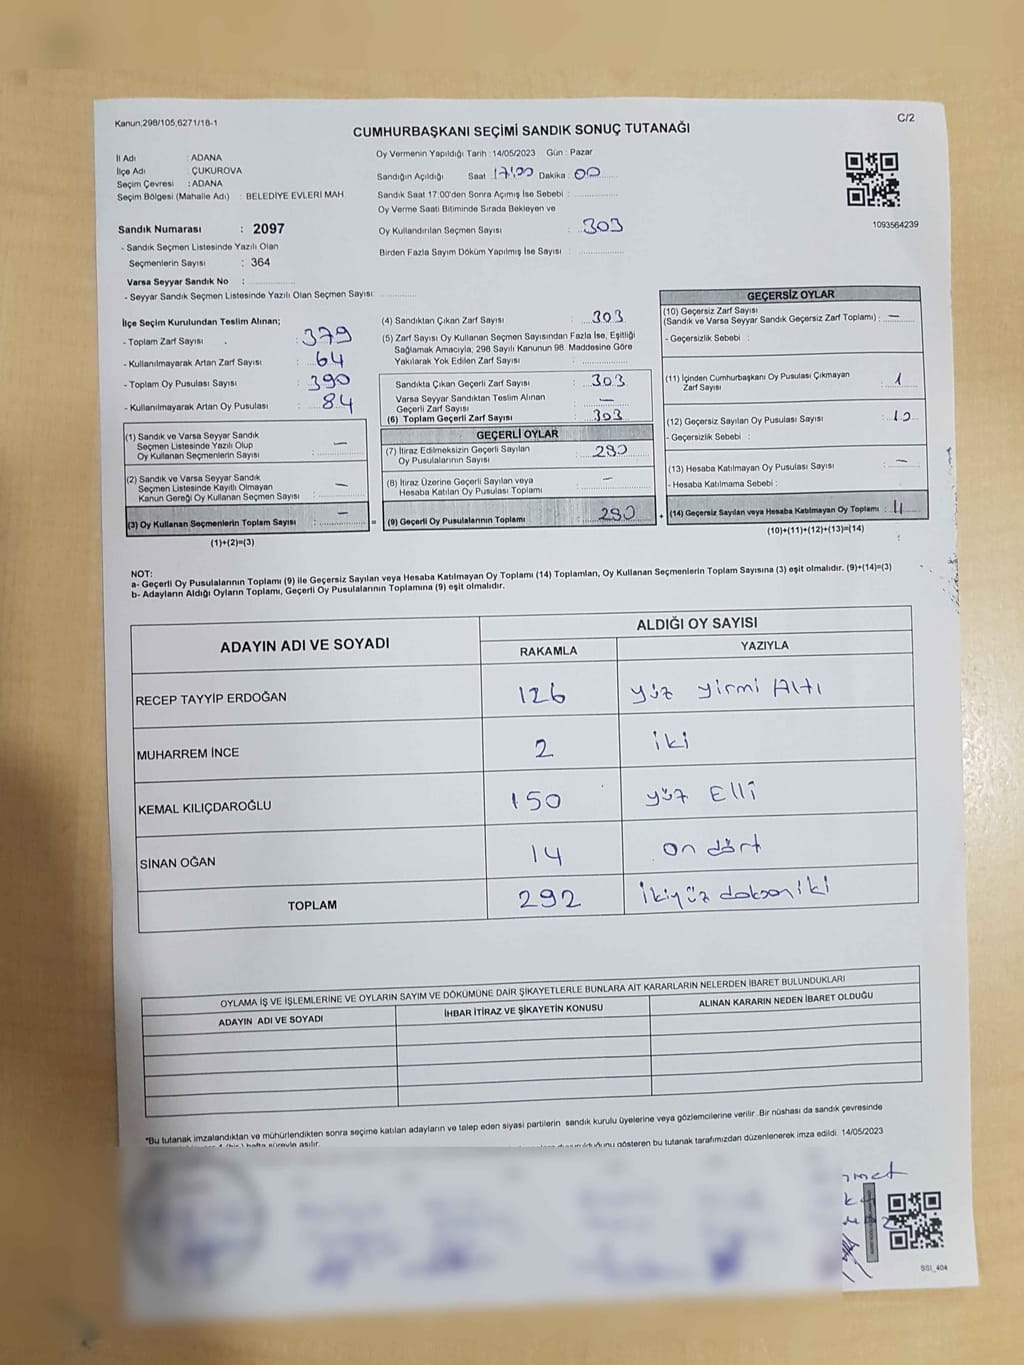 Kanun;298/105,6271/18-1
C/2
CUMHURBAŞKANI SEÇİMİ SANDIK SONUÇ TUTANAĞI
İl Adı : ADANA
İlçe Adı : ÇUKUROVA
Seçim Çevresi : ADANA
Seçim Bölgesi (Mahalle Adı) : BELEDİYE EVLERİ MAH
Oy Vermenin Yapıldığı Tarih : 14/05/2023 Gün : Pazar
Sandığın Açıldığı Saat 17:00 Dakika : 00
Sandık Saat 17:00'den Sonra Açımış İse Sebebi :
Oy Verme Saati Bitiminde Sırada Bekleyen ve
Oy Kullandırılan Seçmen Sayısı : 303
Birden Fazla Sayım Döküm Yapılmış İse Sayısı :
1093564239
Sandık Numarası : 2097
- Sandık Seçmen Listesinde Yazılı Olan
Seçmenlerin Sayısı : 364
Varsa Seyyar Sandık No :
- Seyyar Sandık Seçmen Listesinde Yazılı Olan Seçmen Sayısı:
İlçe Seçim Kurulundan Teslim Alınan;
- Toplam Zarf Sayısı : 379
- Kullanılmayarak Artan Zarf Sayısı : 64
- Toplam Oy Pusulası Sayısı : 390
- Kullanılmayarak Artan Oy Pusulası : 84
(1) Sandık ve Varsa Seyyar Sandık
Seçmen Listesinde Yazılı Olup
Oy Kullanan Seçmenlerin Sayısı : —
(2) Sandık ve Varsa Seyyar Sandık
Seçmen Listesinde Kayıtlı Olmayan
Kanun Gereği Oy Kullanan Seçmen Sayısı : —
(3) Oy Kullanan Seçmenlerin Toplam Sayısı : —
(1)+(2)=(3)
(4) Sandıktan Çıkan Zarf Sayısı : 303
(5) Zarf Sayısı Oy Kullanan Seçmen Sayısından Fazla İse, Eşitliği
Sağlamak Amacıyla; 298 Sayılı Kanunun 98. Maddesine Göre
Yakılarak Yok Edilen Zarf Sayısı :
Sandıkta Çıkan Geçerli Zarf Sayısı : 303
Varsa Seyyar Sandıktan Teslim Alınan
Geçerli Zarf Sayısı : —
(6) Toplam Geçerli Zarf Sayısı : 303
GEÇERLİ OYLAR
(7) İtiraz Edilmeksizin Geçerli Sayılan
Oy Pusulalarının Sayısı :
(8) İtiraz Üzerine Geçerli Sayılan veya
Hesaba Katılan Oy Pusulası Toplamı : —
= (9) Geçerli Oy Pusulalarının Toplamı :
GEÇERSİZ OYLAR
(10) Geçersiz Zarf Sayısı
(Sandık ve Varsa Seyyar Sandık Geçersiz Zarf Toplamı) : —
- Geçersizlik Sebebi :
(11) İçinden Cumhurbaşkanı Oy Pusulası Çıkmayan
Zarf Sayısı : 1
(12) Geçersiz Sayılan Oy Pusulası Sayısı : 10
- Geçersizlik Sebebi :
(13) Hesaba Katılmayan Oy Pusulası Sayısı : —
- Hesaba Katılmama Sebebi :
+ (14) Geçersiz Sayılan veya Hesaba Katılmayan Oy Toplamı : 11
(10)+(11)+(12)+(13)=(14)
NOT:
a- Geçerli Oy Pusulalarının Toplamı (9) ile Geçersiz Sayılan veya Hesaba Katılmayan Oy Toplamı (14) Toplamları, Oy Kullanan Seçmenlerin Toplam Sayısına (3) eşit olmalıdır. (9)+(14)=(3)
b- Adayların Aldığı Oyların Toplamı, Geçerli Oy Pusulalarının Toplamına (9) eşit olmalıdır.
ADAYIN ADI VE SOYADI
ALDIĞI OY SAYISI
RAKAMLA YAZIYLA
RECEP TAYYİP ERDOĞAN 126 yüz yirmi Altı
MUHARREM İNCE 2 iki
KEMAL KILIÇDAROĞLU 150 yüz Elli
SİNAN OĞAN 14 on dört
TOPLAM 292 İkiyüz doksan iki
OYLAMA İŞ VE İŞLEMLERİNE VE OYLARIN SAYIM VE DÖKÜMÜNE DAİR ŞİKAYETLERLE BUNLARA AİT KARARLARIN NELERDEN İBARET BULUNDUKLARI
ADAYIN ADI VE SOYADI İHBAR İTİRAZ VE ŞİKAYETİN KONUSU ALINAN KARARIN NEDEN İBARET OLDUĞU
*Bu tutanak imzalandıktan ve mühürlendikten sonra seçime katılan adayların ve talep eden siyasi partilerin sandık kurulu üyelerine veya gözlemcilerine verilir .Bir nüshası da sandık çevresinde
gösteren bu tutanak tarafımızdan düzenlenerek imza edildi. 14/05/2023
SSI_404